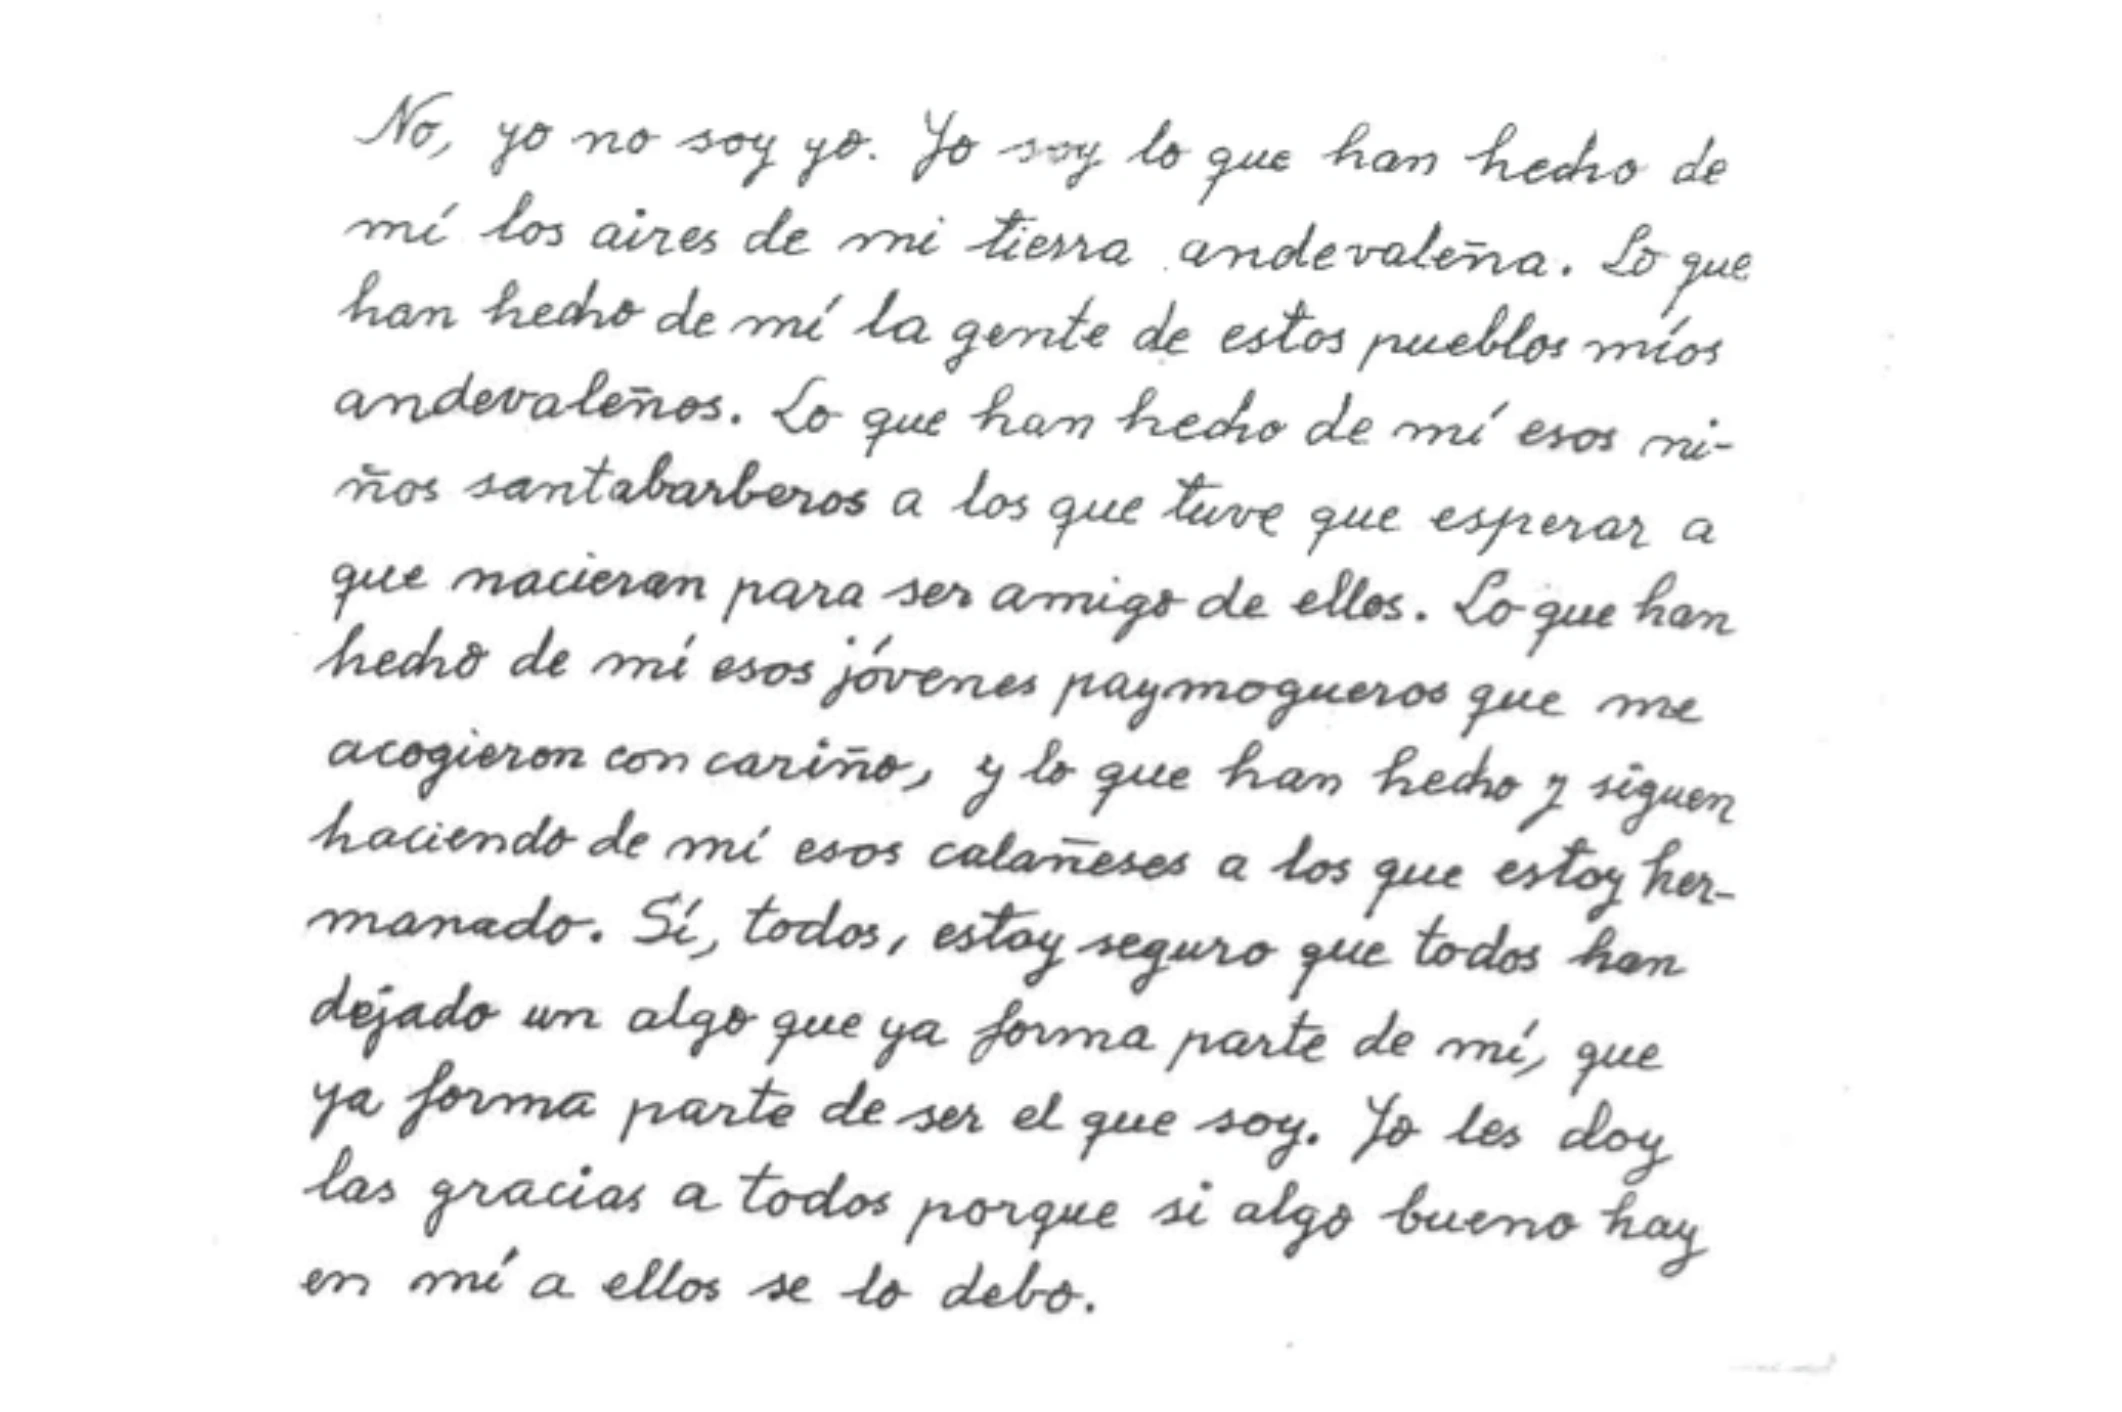 No, yo no soy yo. Yo soy lo que han hecho de
mí los aires de mi tierra andevaleña. Lo que
han hecho de mí la gente de estos pueblos míos
andevaleños. Lo que han hecho de mí esos ni-
ños santabarberos a los que tuve que esperar a
que nacieran para ser amigo de ellos. Lo que han
hecho de mí esos jóvenes paymogueros que me
acogieron con cariño, y lo que han hecho y siguen
haciendo de mí esos calañeses a los que estoy her-
manado. Sí, todos, estoy seguro que todos han
dejado un algo que ya forma parte de mí, que
ya forma parte de ser el que soy. Yo les doy
las gracias a todos porque si algo bueno hay
en mí a ellos se lo debo.